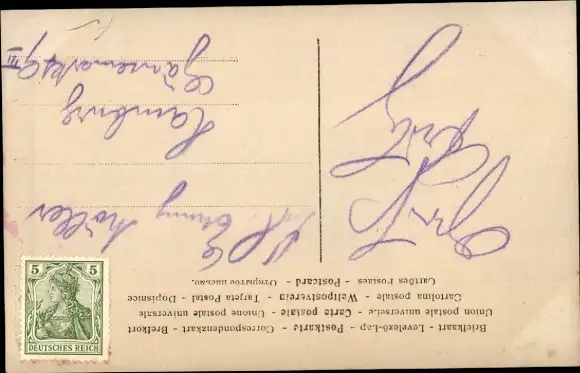 Briefkaart - Levelező-Lap - Postkarte - Correspondenzkart - Brefkort
Union postale universelle - Carte postale - Unione postale universale
Cartolina postale - Weltpostverein - Tarjeta Postal - Dopisnice
Cartões Postaes - Postcard - Открытое письмо.
Emmy Möller
Hamburg
Gänsemarkt 9 III
Gruß
Fritz
5 5
DEUTSCHES REICH